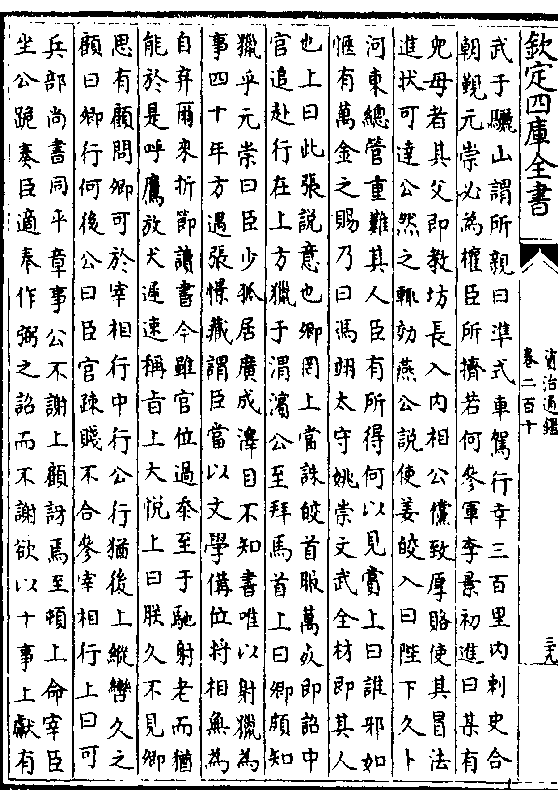 欽定四庫全書
資治通鑑
卷二百十
三九
武于驪山謂所親曰準式車駕行幸三百里内刺史合
朝覲元崇必為權臣所擠若何參軍李景初進曰某有
兒母者其父即教坊長入内相公儻致厚賂使其冒法
進狀可達公然之輒効燕公說使姜皎入曰陛下久卜
河東總管重難其人臣有所得何以見賞上曰誰邪如
愜有萬金之賜乃曰馮翊太守姚崇文武全材即其人
也上曰此張說意也卿罔上當誅皎首服萬死即詔中
官追赴行在上方獵于渭濱公至拜馬首上曰卿頗知
獵乎元崇曰臣少孤居廣成澤目不知書唯以射獵為
事四十年方遇張憬藏謂臣當以文學備位將相無為
自弃爾來折節讀書今雖官位過忝至于馳射老而猶
能於是呼鷹放犬遲速稱旨上大悦上曰朕久不見卿
思有顧問卿可於宰相行中行公行猶後上縱轡久之
顧曰卿行何後公曰臣官疎賤不合參宰相行上曰可
兵部尚書同平章事公不謝上顧訝焉至頓上命宰臣
坐公跪奏臣適奉作弼之詔而不謝欲以十事上獻有